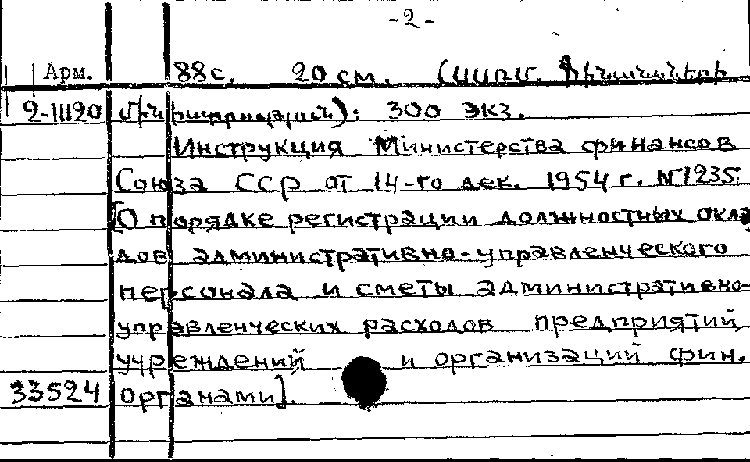 -2-
Арм. 88с. 20см. (ՍՍՌՄ. Ֆինանսների
2-11190 մինիստրություն): 300 экз.
Инструкция Министерства финансов
Союза ССР от 14-го дек. 1954г. №1235:
[О порядке регистрации должностных окла
дов административно-управленческого
персонала и сметы административно-
управленческих расходов предприятий
учреждений и организаций фин.
33524 органами].